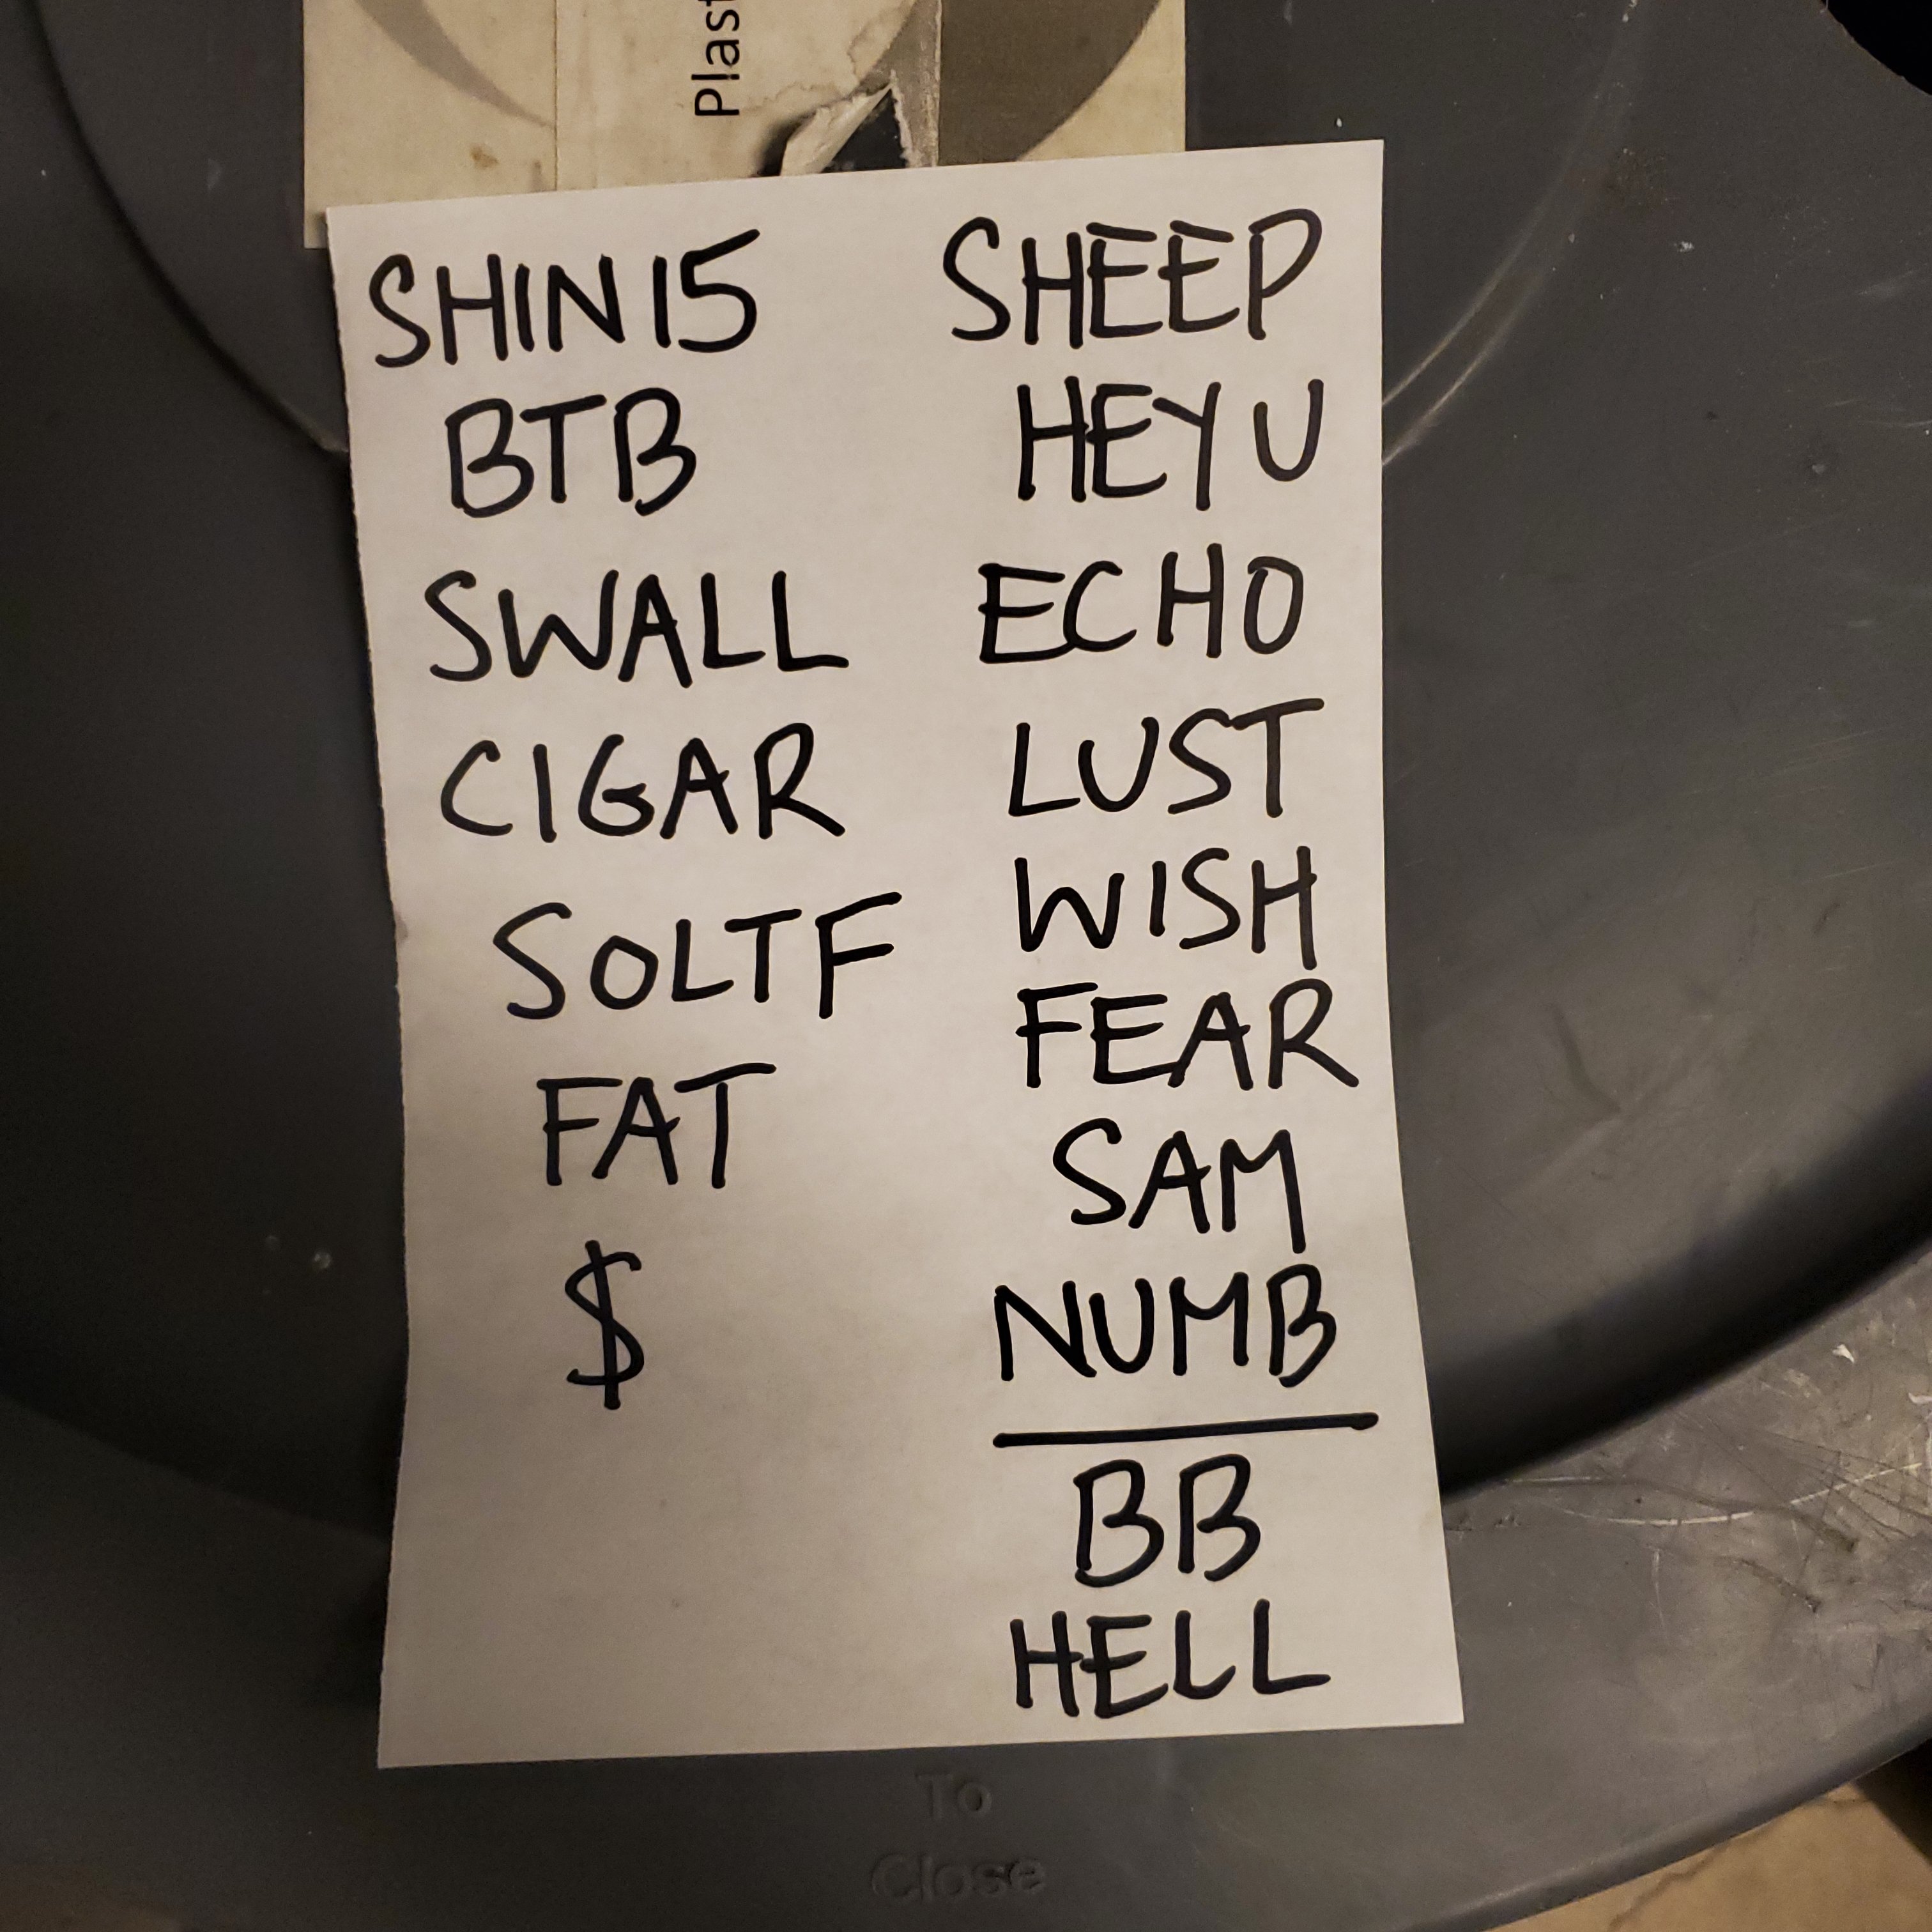 Plast
SHIN15
BTB
SWALL
CIGAR
SOLTF
FAT
$
SHEEP
HEY U
ECHO
LUST
WISH
FEAR
SAM
NUMB
BB
HELL
To
Close